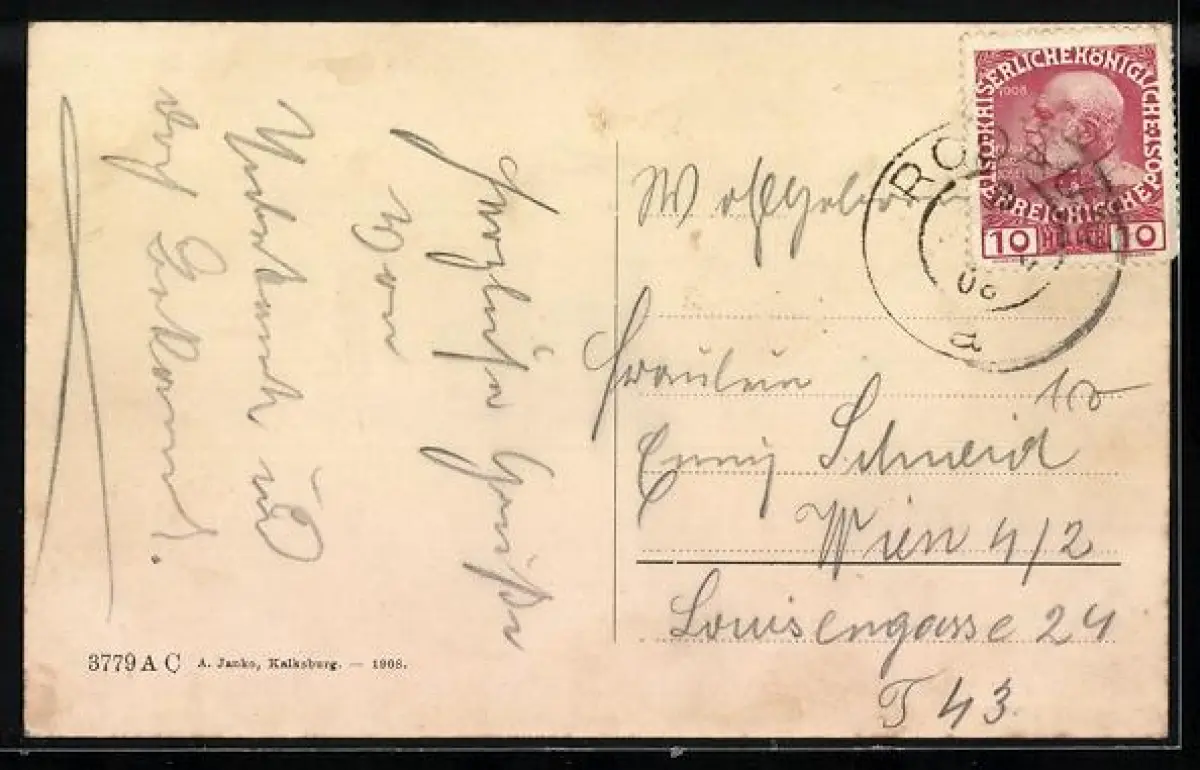 Herzliche Grüße
Von
Unbekannt und
doch Bekannt!
Wohlgeboren
Fräulein
Emmy Schneid
Wien 4/2
Louisengasse 24
T 43.
3779 A C A. Janko, Kalksburg. — 1908.
KAISERLICHE KÖNIGLICHE ÖSTERREICHISCHE POST
1908
10 HELLER 10
08
a